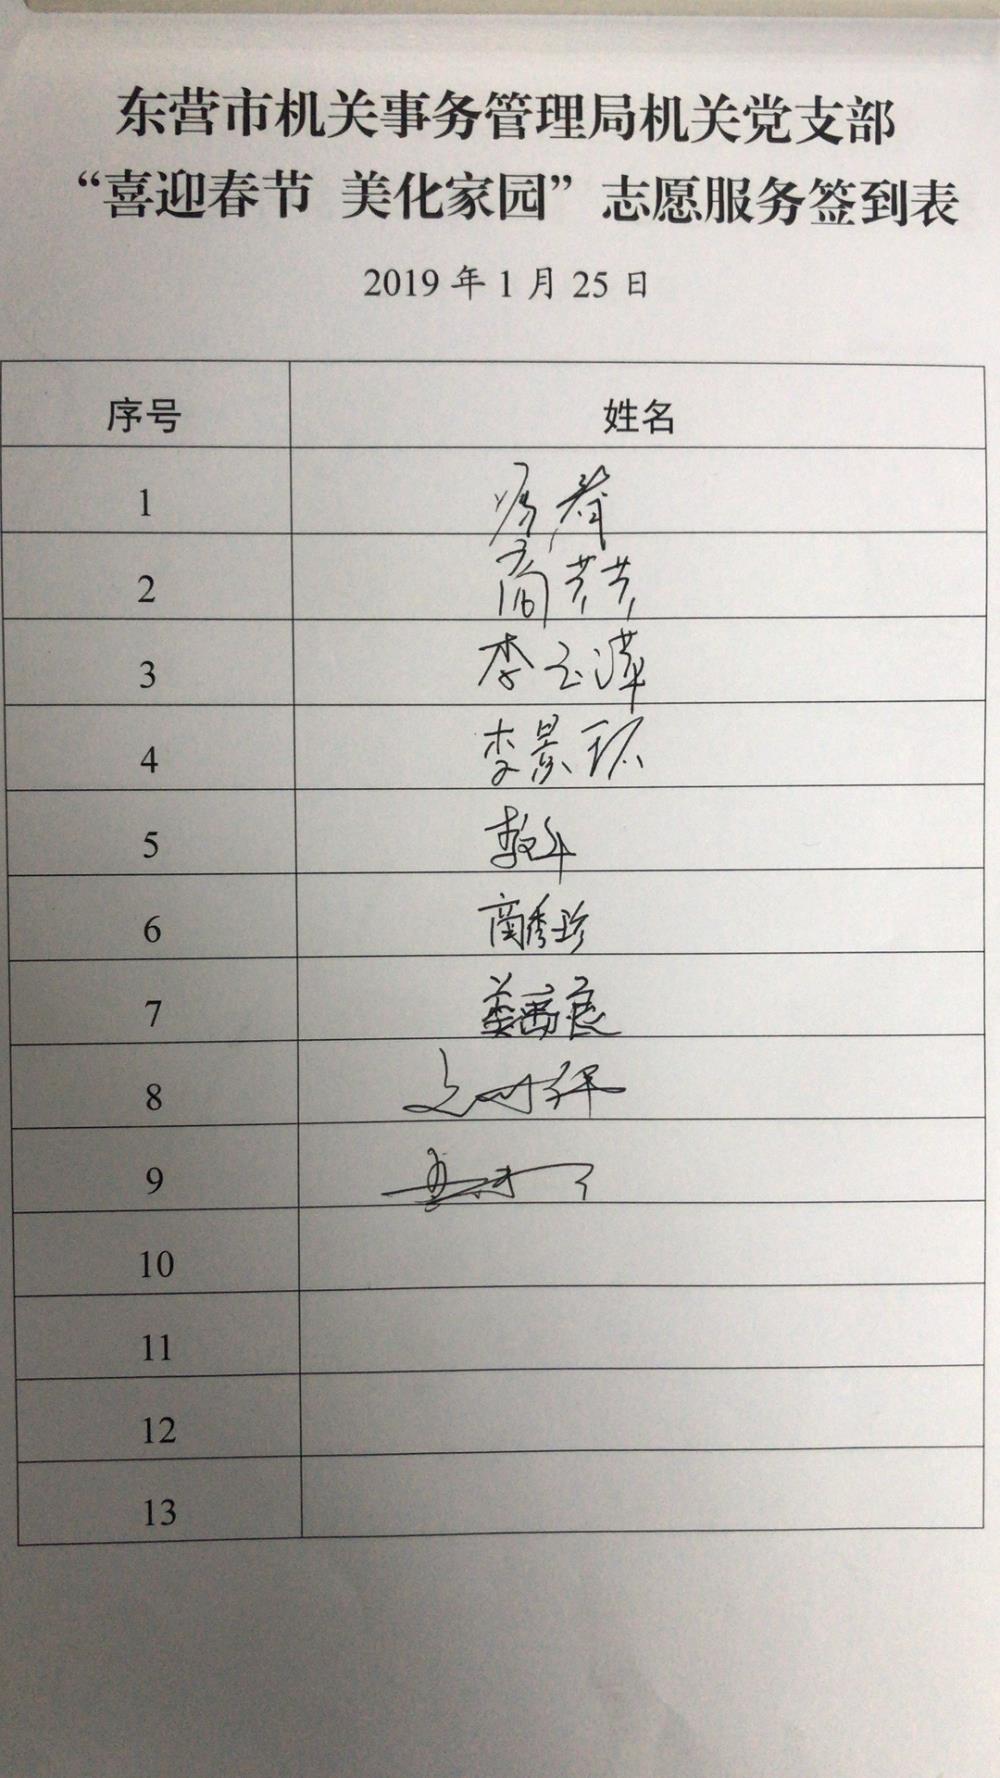 东营市机关事务管理局机关党支部
“喜迎春节 美化家园”志愿服务签到表
2019 年 1 月 25 日
序号 姓名
1
2 商芳芳
3 李玉萍
4 李景环
5
6 商秀珍
7
8
9
10
11
12
13